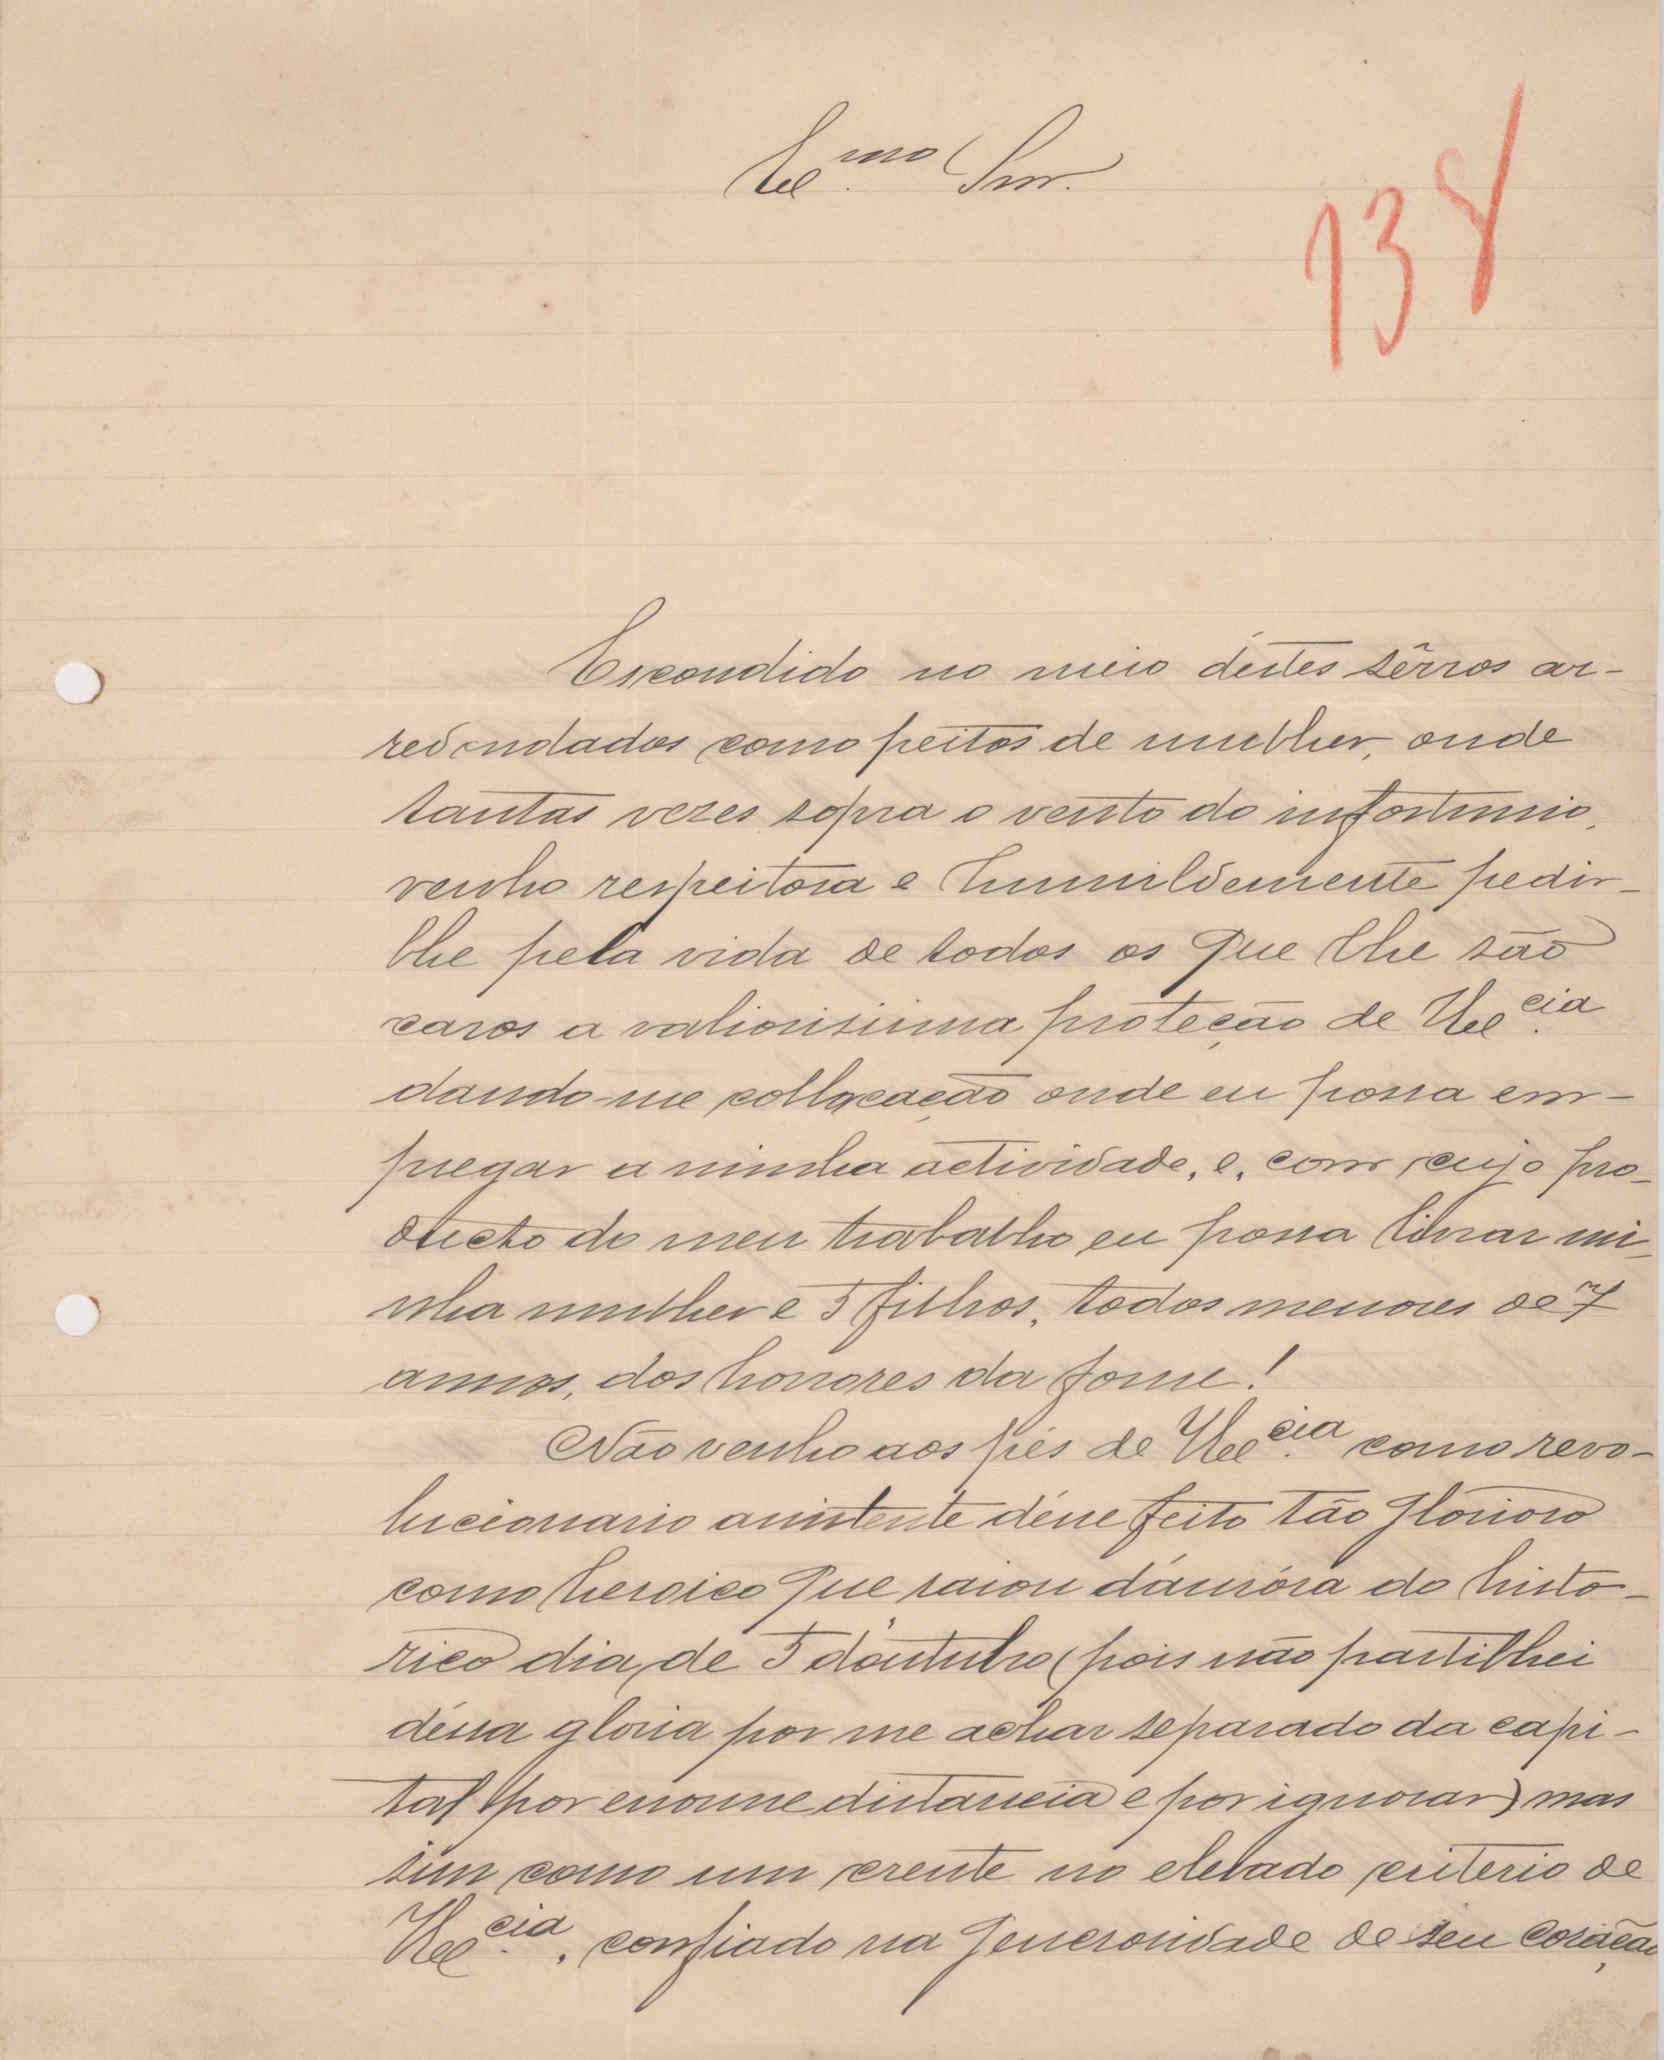 Ex.mo Snr.
138
Escondido no meio déstes sêrros ar-
redondados como peitos de mulher, onde
tantas vezes sopra o vento do infortunio,
venho respeitosa e humildemente pedir-
lhe pela vida de todos os que lhe são
caros a valiosisima proteção de VEx.cia
dando-me collocação onde eu possa em-
pregar a minha actividade, e, com cujo pro-
ducto do meu trabalho eu possa livrar mi-
nha mulher e 5 filhos, todos menores de 7
annos, dos horrores da fome!
Não venho aos pés de VEx.cia como revo-
lucionario assistente désse feito tão glorioso
como heroico que raiou d'auróra do histo-
rico dia de 5 d'outubro (pois não partilhei
déssa gloria por me achar separado da capi-
tal por enorme distancia e por ignorar) mas
sim como um crente no elevado criterio de
VEx.cia, confiado na generosidade de seu coração